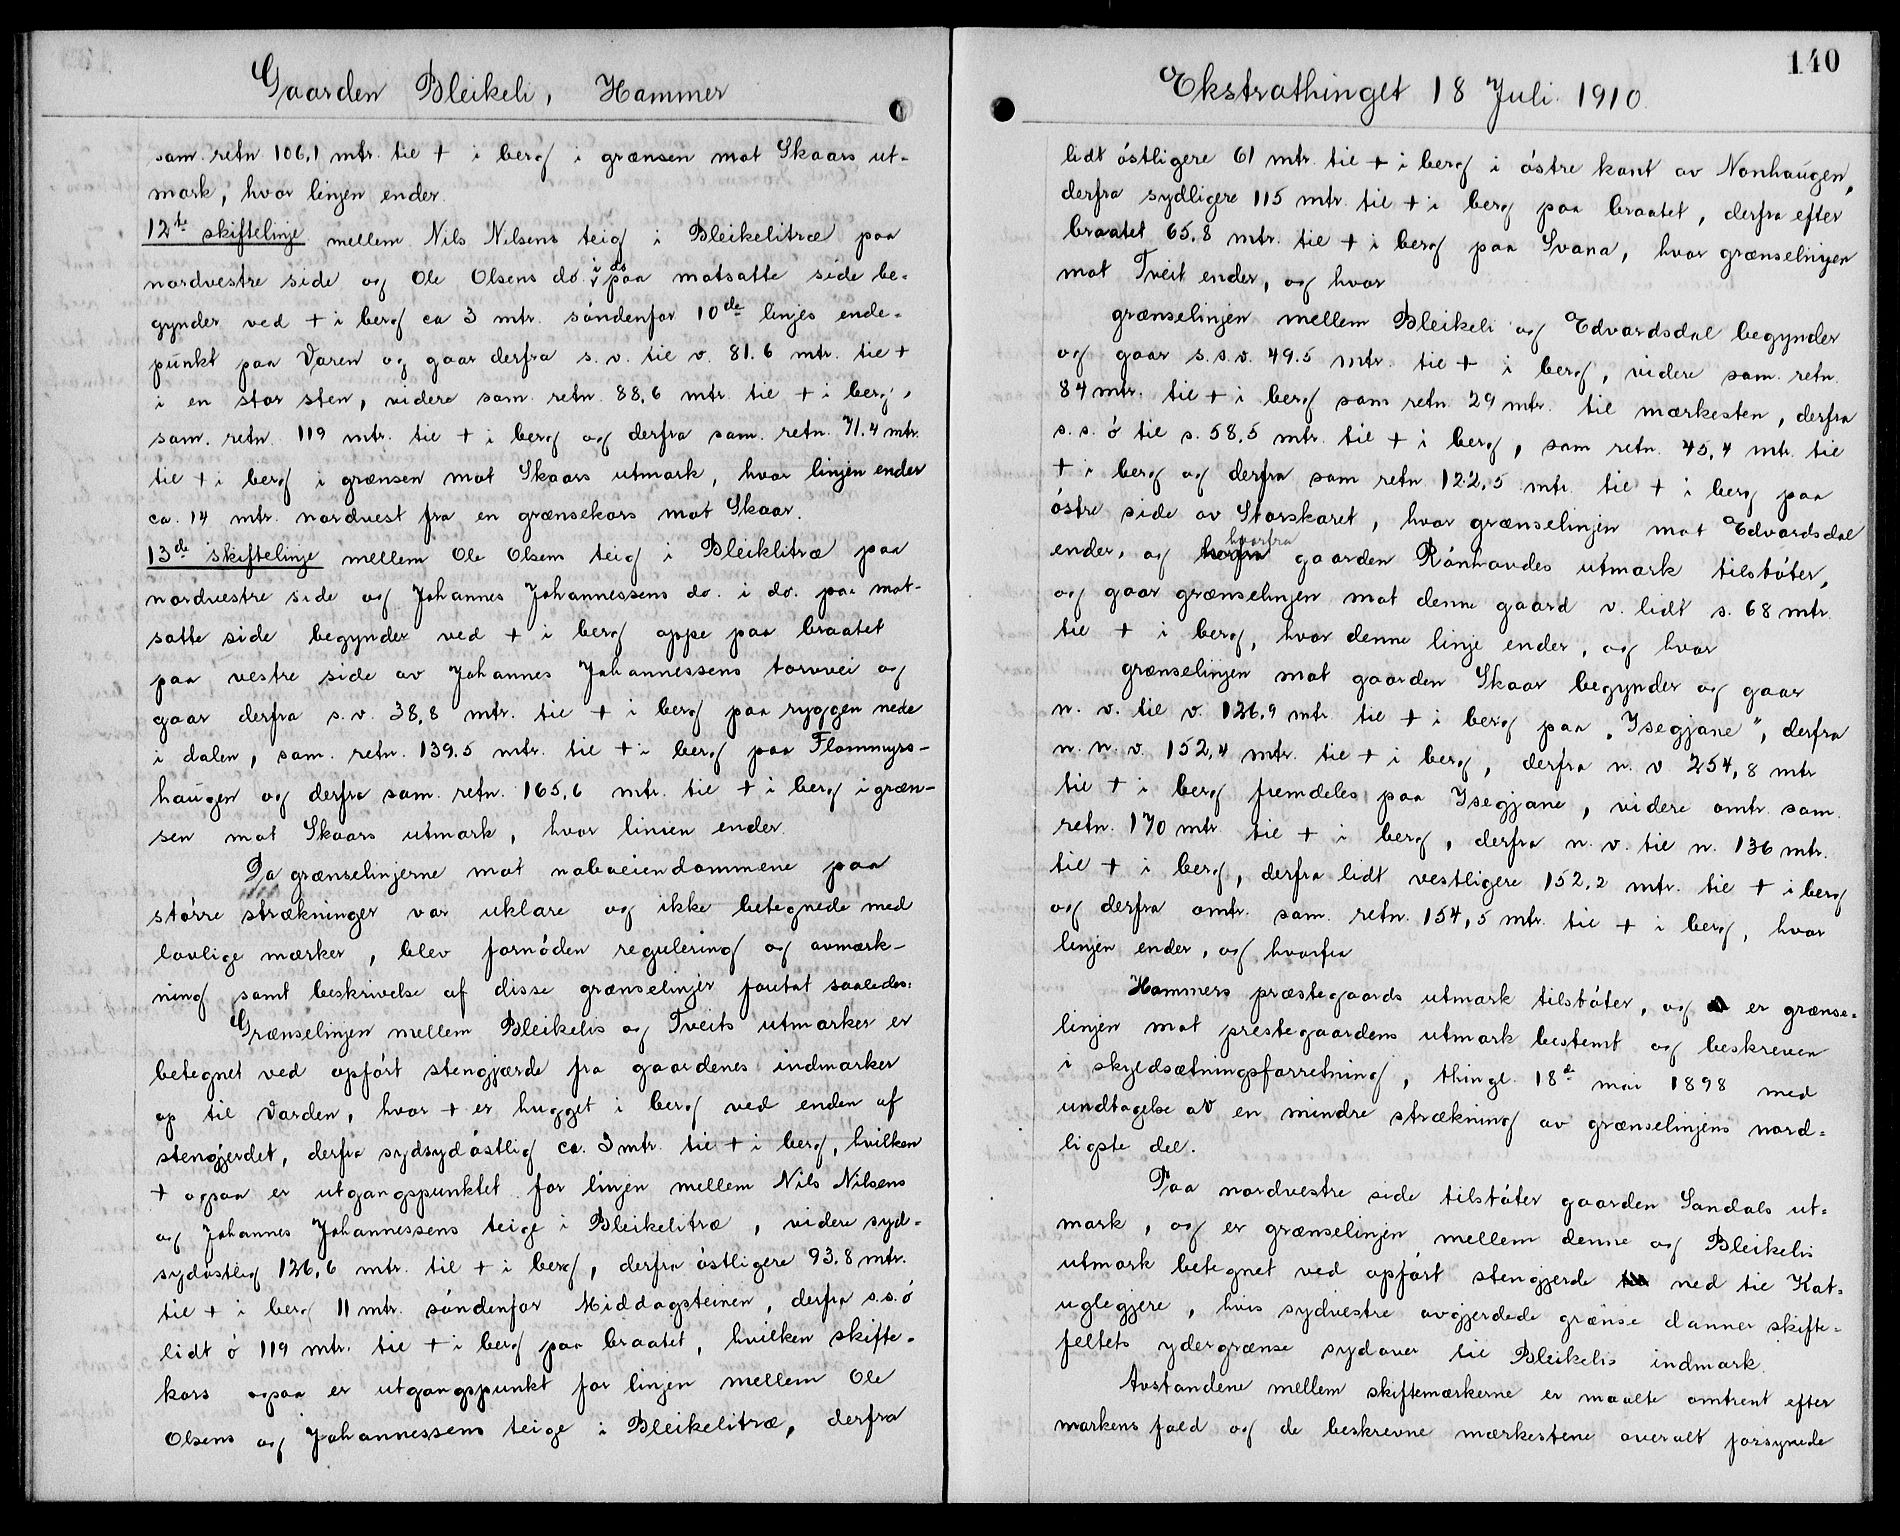 Gaarden Bleikeli, Hammer
sam. retn 106,1 mtr. til + i berg i grænsen mot Skaars ut-
mark, hvor linjen ender.
12te skiftelinje mellem Nils Nilsens teig i Bleikelitræ paa
nordvestre side og Ole Olsens do. i do paa motsatte side be-
gynder ved + i berg ca 3 mtr. søndenfor 10de linjes ende-
punkt paa Varen og gaar derfra s. v. til v. 81.6 mtr. til +
i en stor sten, videre sam. retn. 88,6 mtr. til + i berg,
sam. retn. 119 mtr. til + i berg og derfra sam. retn. 71.4 mtr.
til + i berg i grænsen mot Skaars utmark, hvor linjen ender
ca. 14 mtr. nordvest fra en grænsekors mot Skaar.
13de skiftelinje mellem Ole Olsens teig i Bleiklitræ paa
nordvestre side og Johannes Johannessens do. i do. paa mot-
satte side begynder ved + i berg oppe paa braatet
paa vestre side av Johannes Johannessens torvvei og
gaar derfra s. v. 38,8 mtr. til + i berg paa ryggen nede
i dalen, sam. retn. 139.5 mtr. til + i berg paa Flommyrs-
haugen og derfra sam. retn. 165,6 mtr. til + i berg i græn-
sen mot Skaars utmark, hvor linien ender.
Da grænselinjerne mot naboeiendommene paa
større strækninger var uklare og ikke betegnede med
lovlige mærker, blev fornøden regulering og avmærk-
ning samt beskrivelse af disse grænselinjer foretat saaledes:
Grænselinjen mellem Bleikelis og Tveits utmarker er
betegnet ved opført stengjærde fra gaardenes indmarker
op til Varden, hvor + er hugget i berg ved enden af
stengjerdet, derfra sydsydøstlig ca. 3 mtr. til + i berg, hvilken
+ ogsaa er utgangspunktet for linjen mellem Nils Nilsens
og Johannes Johannessens teige i Bleikelitræ, videre syd-
sydøstlig 126,6 mtr. til + i berg, derfra østligere 93.8 mtr.
til + i berg 11 mtr. søndenfor Middagsteinen, derfra s.s.ø
lidt ø 119 mtr. til + i berg paa braatet, hvilken skifte-
kors ogsaa er utgangspunkt for linjen mellem Ole
Olsens og Johannessens teige i Bleikelitræ, derfra
140
Ekstrathinget 18 Juli 1910.
lidt østligere 61 mtr. til + i berg i østre kant av Nonhaugen,
derfra sydligere 115 mtr. til + i berg paa braatet, derfra efter
braatet 65.8 mtr. til + i berg paa Svana, hvor grænselinjen
mot Tveit ender, og hvor
grænselinjen mellem Bleikeli og Edvardsdal begynder
og gaar s.s.v. 49.5 mtr. til + i berg, videre sam. retn.
84 mtr. til + i berg sam retn. 29 mtr. til mærkesten, derfra
s.s. ø til s. 58,5 mtr. til + i berg, sam retn. 45,4 mtr. til
+ i berg og derfra sam retn 122,5 mtr. til + i berg paa
østre side av Storskaret, hvor grænselinjen mot Edvardsdal
ender, og hvorfra gaarden Rønhovdes utmark tilstøter,
og gaar grænselinjen mot denne gaard v. lidt s. 68 mtr.
til + i berg, hvor denne linje ender, og hvor
grænselinjen mot gaarden Skaar begynder og gaar
n. v. til v. 126,9 mtr. til + i berg paa „Isegjane", derfra
n. n. v. 152,4 mtr. til + i berg, derfra n. v. 254,8 mtr
til + i berg fremdeles paa Isegjane, videre omtr. sam.
retn. 170 mtr. til + i berg, derfra n. v. til n. 136 mtr.
til + i berg, derfra lidt vestligere 152,2 mtr. til + i berg
og derfra omtr. sam. retn. 154,5 mtr. til + i berg, hvor
linjen ender, og hvorfra
Hammers præstegaards utmark tilstøter, og er grænse-
linjen mot prestegaardens utmark bestemt og beskreven
i skyldsætningsforretning, thingl. 18de mai 1898 med
undtagelse av en mindre strækning av grænselinjens nord-
ligste del.
Paa nordvestre side tilstøter gaarden Sandals ut-
mark, og er grænselinjen mellem denne og Bleikelis
utmark betegnet ved opført stengjerde ned til Kat-
uglegjere, hvis sydvestre avgjerdede grænse danner skifte-
feltets ydergrænse sydover til Bleikelis indmark.
Avstandene mellem skiftemærkerne er maalte omtrent efter
markens fald og de beskrevne mærkestene overalt forsynede